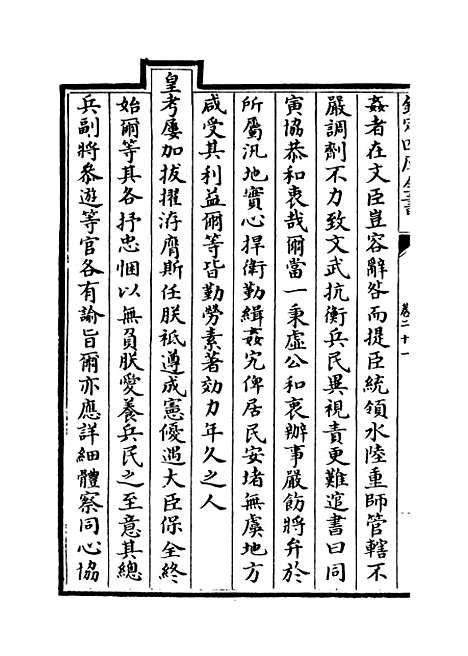 欽定四庫全書
卷二十一
姦者在文臣豈容辭咎而提臣統領水陸重師管轄不
嚴調劑不力致文武抗衡兵民異視責更難逭書曰同
寅協恭和衷哉爾當一秉虛公和衷辦事嚴飭將弁於
所屬汛地實心捍衛勤緝姦宄俾居民安堵無虞地方
咸受其利益爾等皆勤勞素著効力年久之人
皇考屢加拔擢洊膺斯任朕祗遵成憲優遇大臣保全終
始爾等其各抒忠悃以無負朕愛養兵民之至意其總
兵副將叅遊等官各有諭旨爾亦應詳細體察同心協